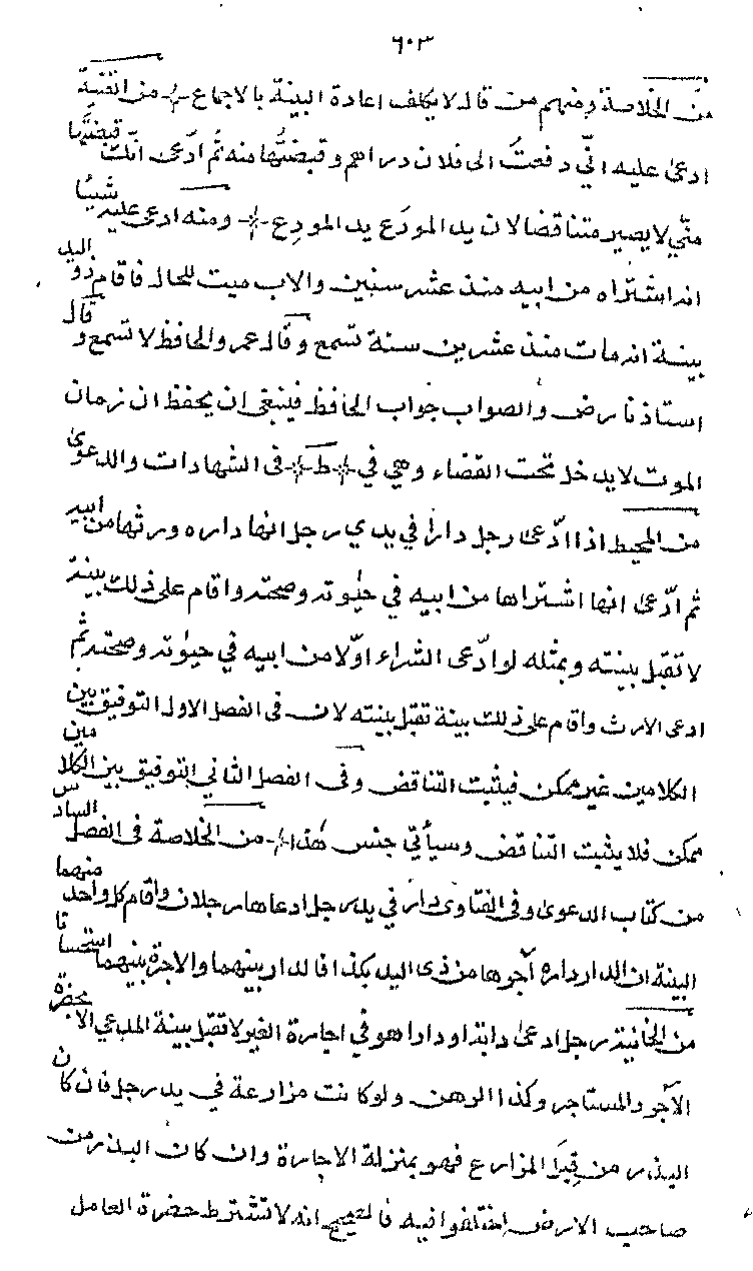 ٦٠٣
من الخلاصة ومنهم من قال لا يكلف اعادة البينة بالاجماع من القنية
ادعى عليه انّي دفعتُ الى فلان دراهم وقبضتُها منه ثم ادّعى انّك قبضتَها
منّي لا يصير متناقضا لان يد المودَع يد المودِع ومنه ادعى عليه شيئا
انه اشتراه من ابيه منذ عشر سنين والاب ميت للحال فاقام ذو اليد
بينة انه مات منذ عشرين سنة تسمع وقال عمر والحافظ لا تسمع وقال
استاذنا رض والصواب جواب الحافظ فينبغي ان يحفظ ان زمان
الموت لا يدخل تحت القضاء وهي في ط في الشهادات والدعوى
من المحيط اذا ادّعى رجل دارا في يدي رجل انها داره ورثها من ابيه
ثم ادّعى انها اشتراها من ابيه في حيوته وصحته واقام على ذلك بينة
لا تقبل بينته وبمثله لو ادّعى الشراء اوّلا من ابيه في حيوته وصحته ثم
ادعى الارث واقام على ذلك بينة تقبل بينته لان في الفصل الاول التوفيق بين
الكلامين غير ممكن فيثبت التناقض وفي الفصل الثاني التوفيق بين الكلامين
ممكن فلا يثبت التناقض وسيأتي جنس هذا من الخلاصة في الفصل السادس
من كتاب الدعوى وفي الفتاوى دار في يد رجل ادعاها رجلان واقام كل واحد منهما
البينة ان الدار داره آجرها من ذي اليد بكذا فالدار بينهما والاجرة بينهما استحسانا
من الخانية رجل ادعى دابة او دارا هو في اجارة الغير لا تقبل بينة المدعي الا بحضرة
الآجر والمستاجر وكذا الرهن ولو كانت مزارعة في يد رجل فان كان
البذر من قِبَل المزارع فهو بمنزلة الاجارة وان كان البذر من
صاحب الارض اختلفوا فيه فالصحيح انه لا تشترط حضرة العامل